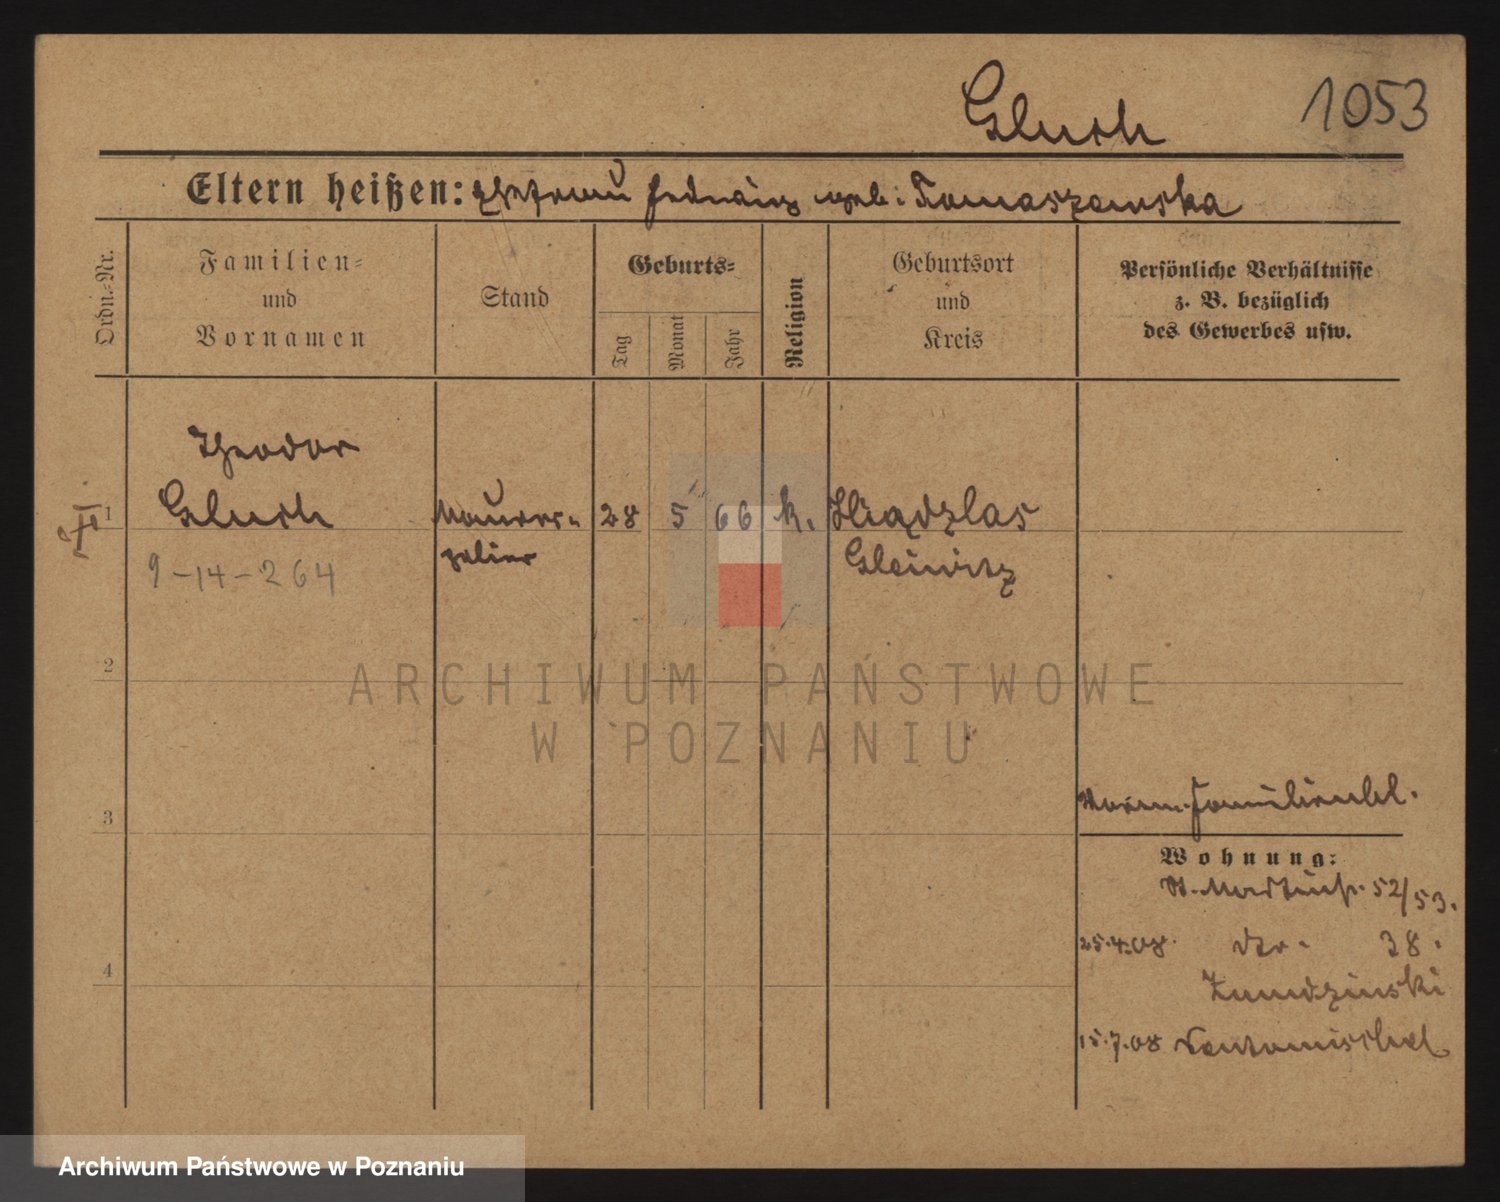 Gluch
1053
Eltern heißen: Ehefrau Hedwig geb. Tomaszewska
Ordn.-Nr.
Familien-
und
Vornamen
Stand
Geburts-
Tag
Monat
Jahr
Religion
Geburtsort
und
Kreis
Persönliche Verhältnisse
z. B. bezüglich
des Gewerbes usw.
Theodor
1
Gluch
Maurer-
28
5
66
k.
polier
Gleiwitz
9-14-264
2
ARCHIWUM PAŃSTWOWE
W POZNANIU
3
Familienbl.
Wohnung:
St. Martinstr. 52/53.
25.4.08. 38.
4
15.7.08
Archiwum Państwowe w Poznaniu